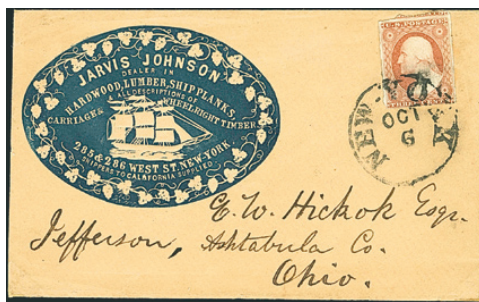 JARVIS JOHNSON
DEALER IN
HARDWOOD, LUMBER, SHIP PLANKS,
ALL DESCRIPTIONS OF
CARRIAGE & WHEELRIGHT TIMBER
285 & 286 WEST ST. NEW-YORK
SHIPPERS TO CALIFORNIA SUPPLIED
U.S. POSTAGE
THREE CENTS
NEW YORK
OCT
6
E. W. Hickok Esqr.
Jefferson, Ashtabula Co.
Ohio.